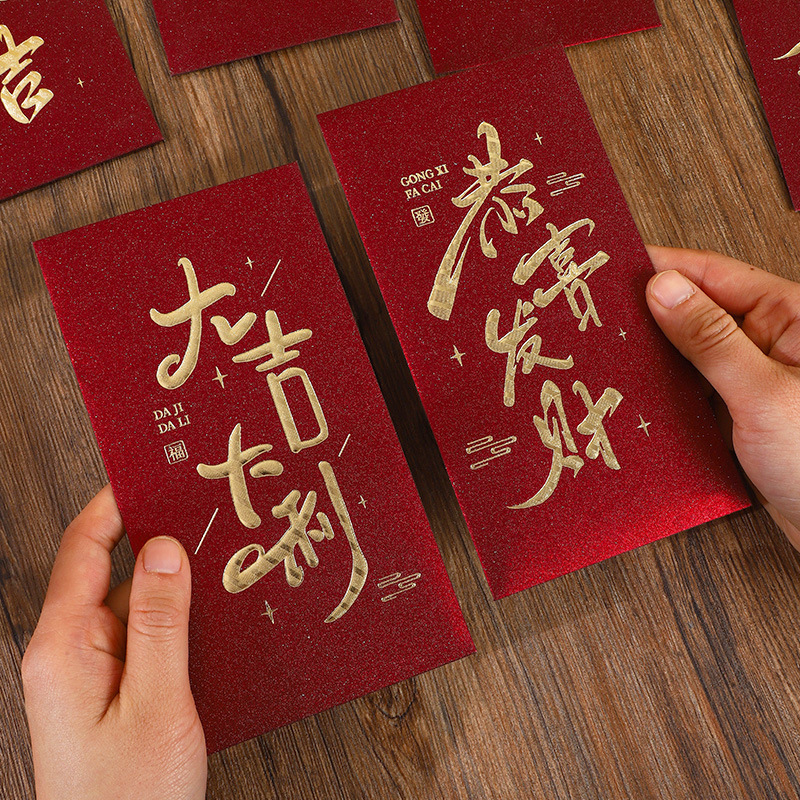 吉
大吉
大利
DA JI
DA LI
福
GONG XI
FA CAI
發
恭喜
发财